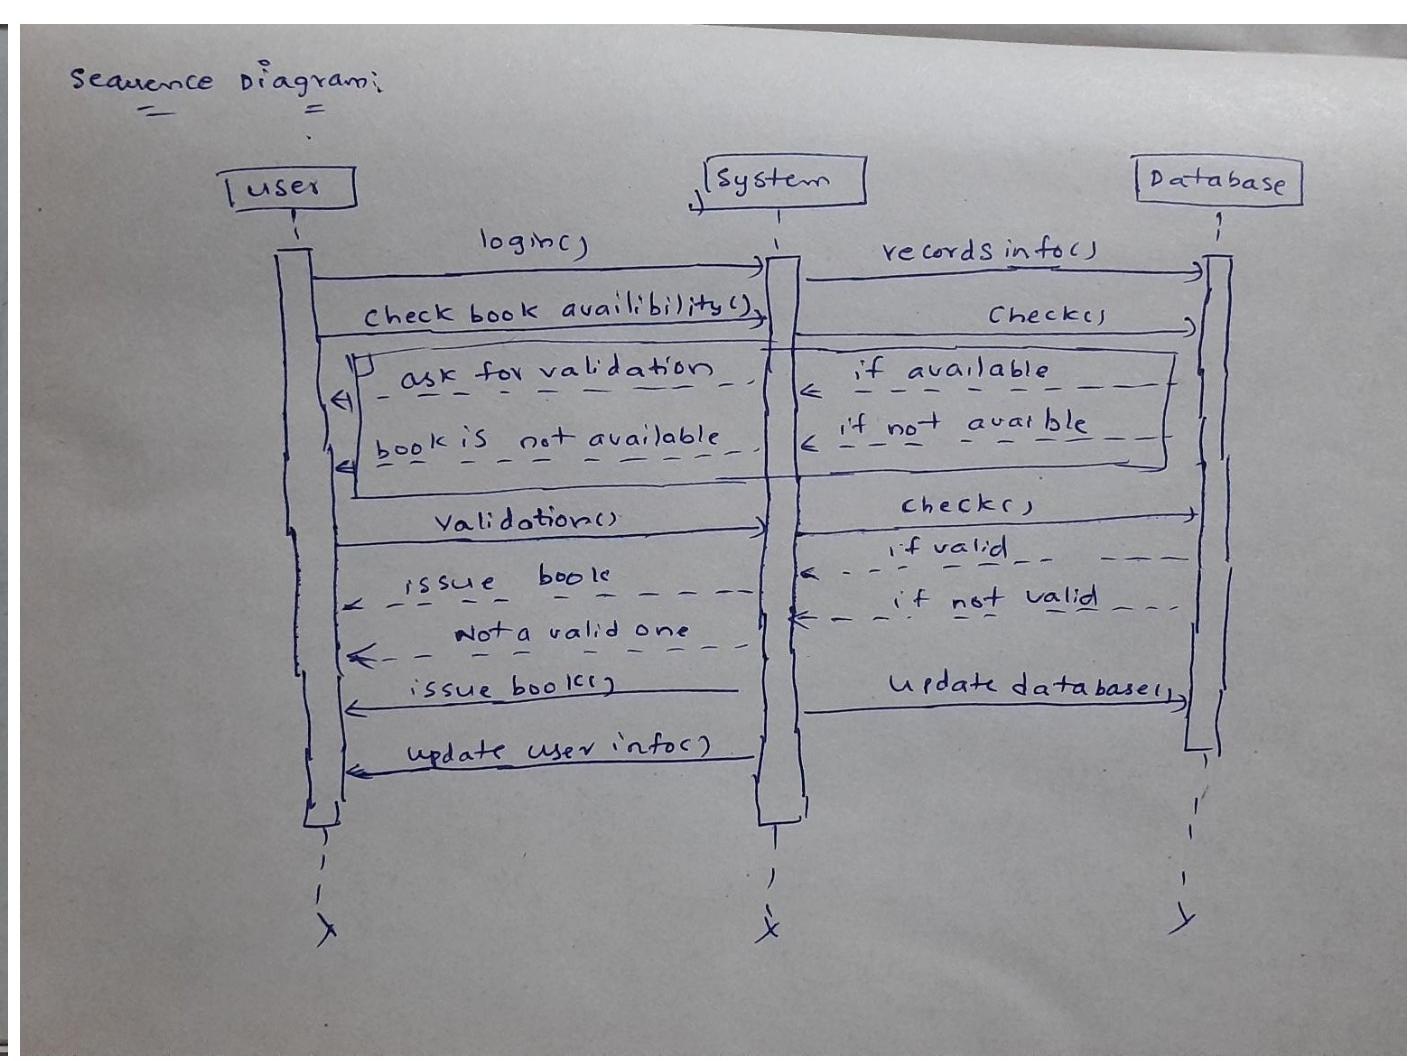 Sequence Diagram:
User
System
Database
login()
records info()
check book availibility()
Check()
ask for validation
if available
book is not available
if not avaible
validation()
check()
if valid
issue book
if not valid
Not a valid one
issue book()
update database()
update user info()